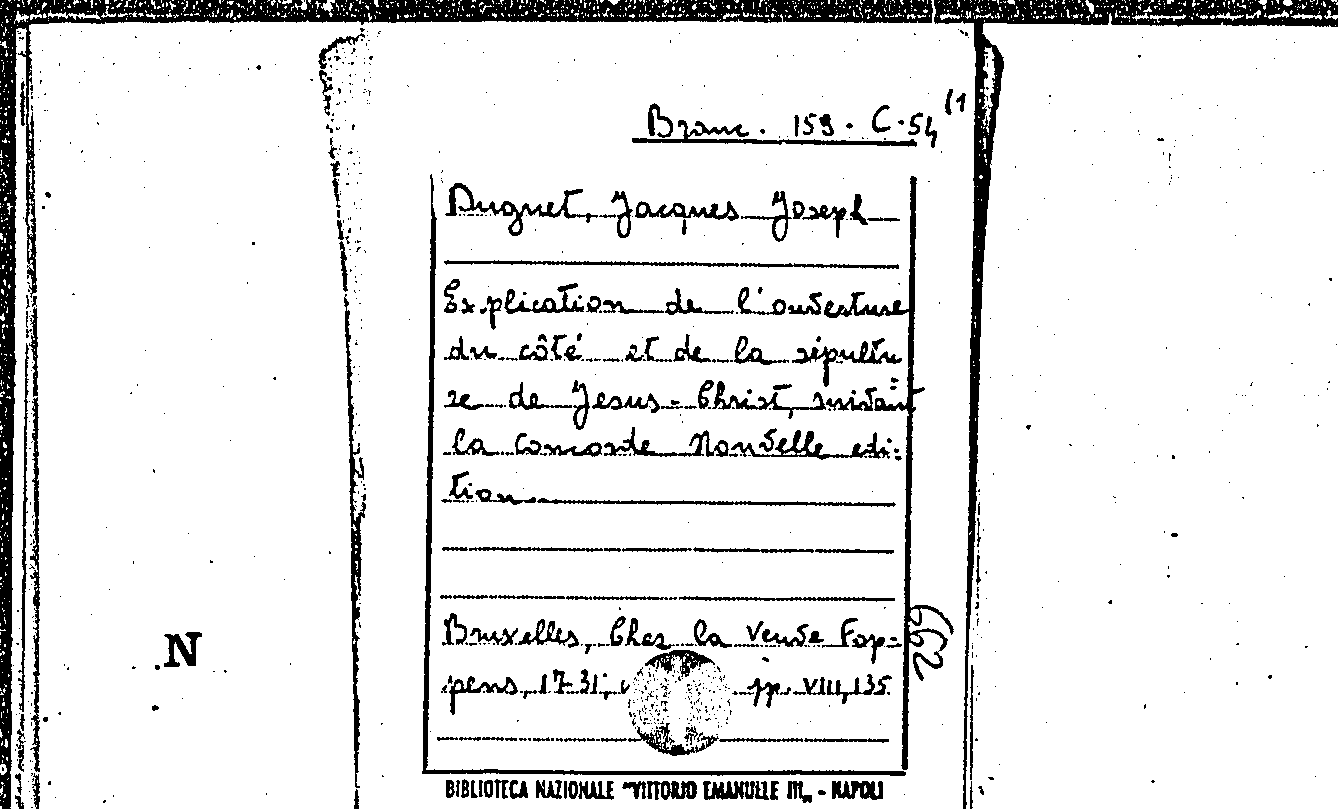 Branc. 159. C. 54 (1
Duguet, Jacques Joseph
Explication de l'ouverture
du côté et de la sépultu
re de Jesus-Christ, suivant
la concorde Nouvelle edi-
tion
Bruxelles, Chez la Veuve Fop-
pens, 1731; pp. VIII, 135
662
N
BIBLIOTECA NAZIONALE "VITTORIO EMANUELE III„ - NAPOLI